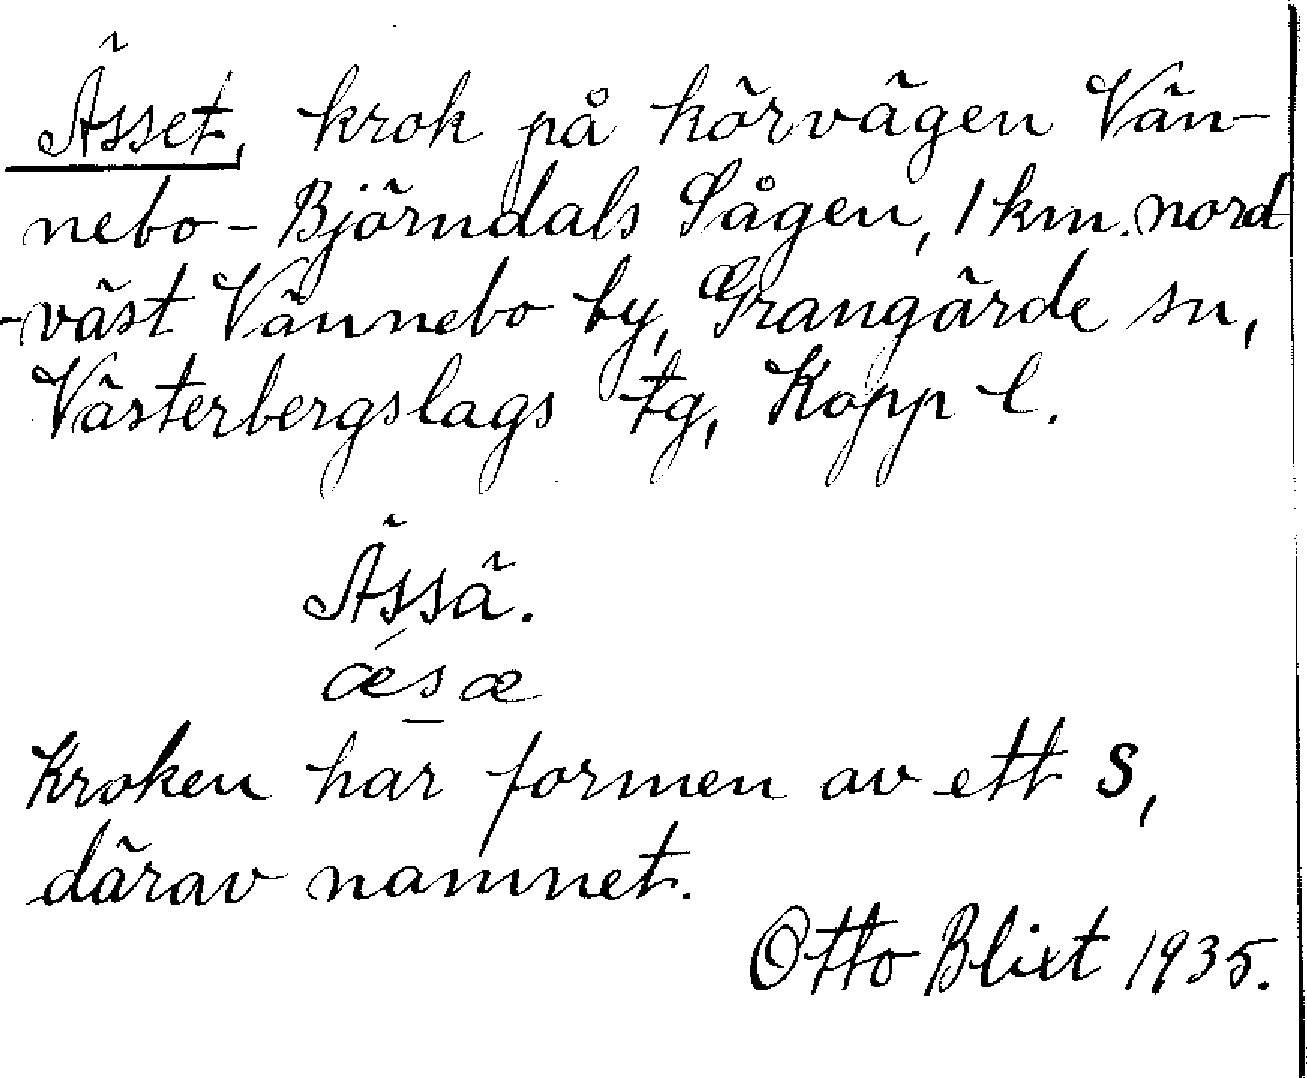 Ässet, krok på körvägen Vän-
nebo - Björndals Sågen, 1 km. nord
-väst Vännebo by, Grangärde sn,
Västerbergslags tg, Kopp l.
Ässä.
ǽs̲æ
Kroken har formen av ett S,
därav namnet.
Otto Blixt 1935.